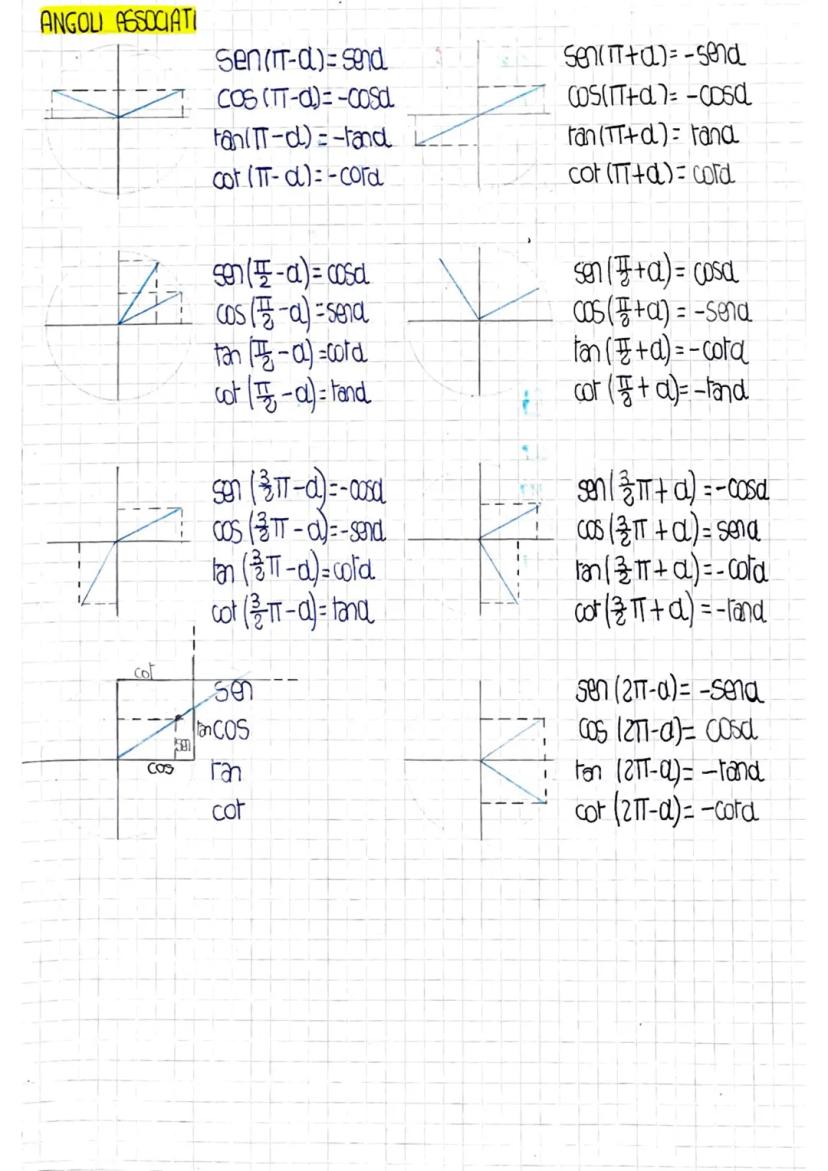 ANGOLI ASSOCIATI
sen(π-α)=senα
cos(π-α)=-cosα
tan(π-α)=-tanα
cot(π-α)=-cotα
sen(π+α)=-senα
cos(π+α)=-cosα
tan(π+α)=tanα
cot(π+α)=cotα
sen(π/2-α)=cosα
cos(π/2-α)=senα
tan(π/2-α)=cotα
cot(π/2-α)=tanα
sen(π/2+α)=cosα
cos(π/2+α)=-senα
tan(π/2+α)=-cotα
cot(π/2+α)=-tanα
sen(3/2π-α)=-cosα
cos(3/2π-α)=-senα
tan(3/2π-α)=cotα
cot(3/2π-α)=tanα
sen(3/2π+α)=-cosα
cos(3/2π+α)=senα
tan(3/2π+α)=-cotα
cot(3/2π+α)=-tanα
cot
sen
tan cos
sen
cos tan
cot
sen(2π-α)=-senα
cos(2π-α)=cosα
tan(2π-α)=-tanα
cot(2π-α)=-cotα